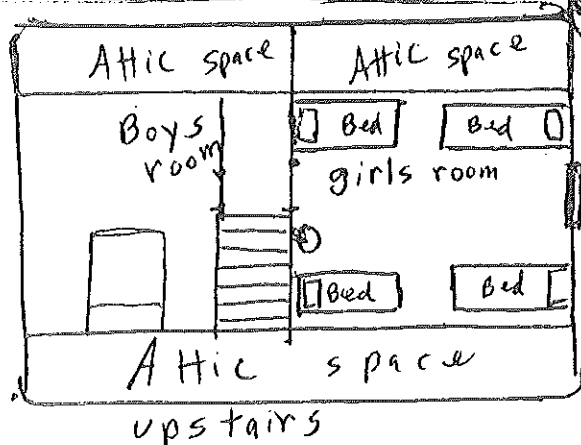 Attic space
Attic space
Boys
room
Bed
Bed
girls room
Bed
Bed
Attic space
upstairs